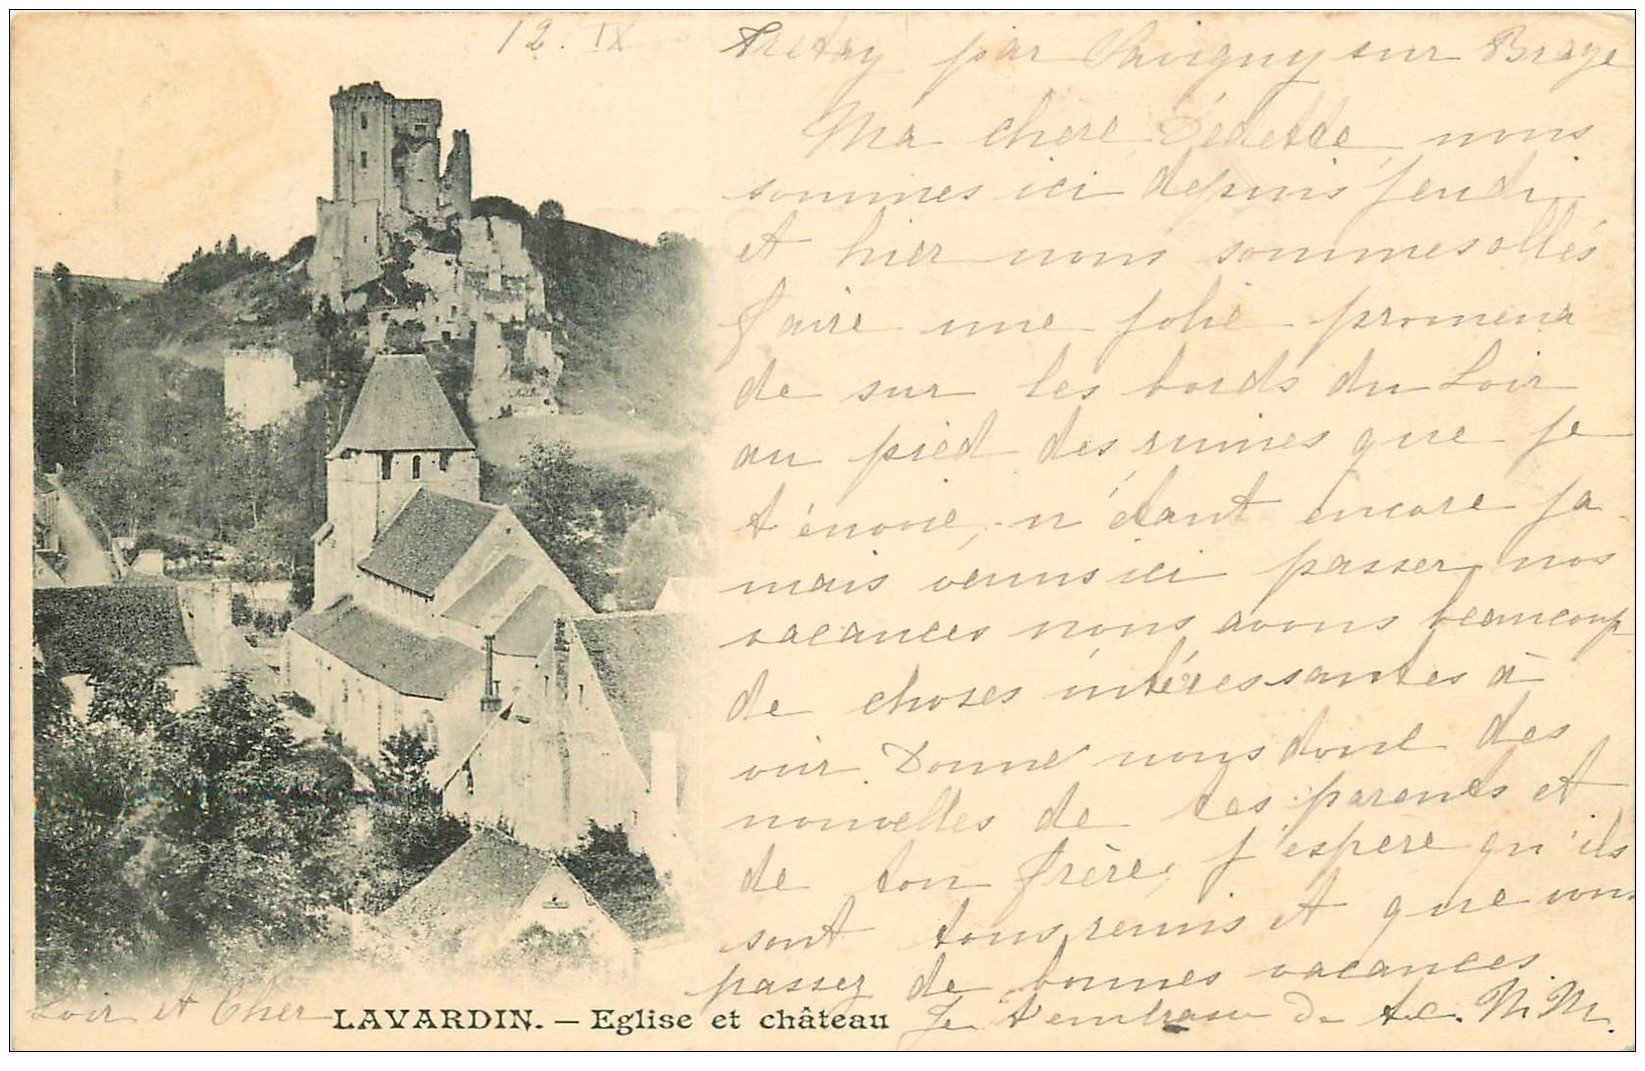 12. IX
Fretay par Savigny sur Braye
Ma chère Dédette, nous
sommes ici depuis jeudi
et hier nous sommes allés
faire une jolie promena
de sur les bords du Loir
au pied des ruines que je
t'envoie, n'étant encore ja
mais venus ici passer nos
vacances nous avons beaucoup
de choses intéressantes à
voir. Donne nous donc des
nouvelles de tes parents et
de ton frère, j'espère qu'ils
sont tous réunis et que vous
passez de bonnes vacances.
Je t'embrasse
Loir et Cher
LAVARDIN. — Eglise et château